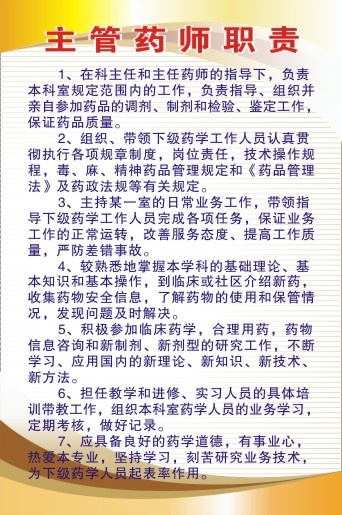 主管药师职责
1、在科主任和主任药师的指导下，负责
本科室规定范围内的工作，负责指导、组织并
亲自参加药品的调剂、制剂和检验、鉴定工作，
保证药品质量。
2、组织、带领下级药学工作人员认真贯
彻执行各项规章制度，岗位责任，技术操作规
程，毒、麻、精神药品管理规定和《药品管理
法》及药政法规等有关规定。
3、主持某一室的日常业务工作，带领指
导下级药学工作人员完成各项任务，保证业务
工作的正常运转，改善服务态度、提高工作质
量，严防差错事故。
4、较熟悉地掌握本学科的基础理论、基
本知识和基本操作，到临床或社区介绍新药，
收集药物安全信息，了解药物的使用和保管情
况，发现问题及时解决。
5、积极参加临床药学，合理用药，药物
信息咨询和新制剂、新剂型的研究工作，不断
学习、应用国内的新理论、新知识、新技术、
新方法。
6、担任教学和进修、实习人员的具体培
训带教工作，组织本科室药学人员的业务学习，
定期考核，做好记录。
7、应具备良好的药学道德，有事业心，
热爱本专业，坚持学习，刻苦研究业务技术，
为下级药学人员起表率作用。